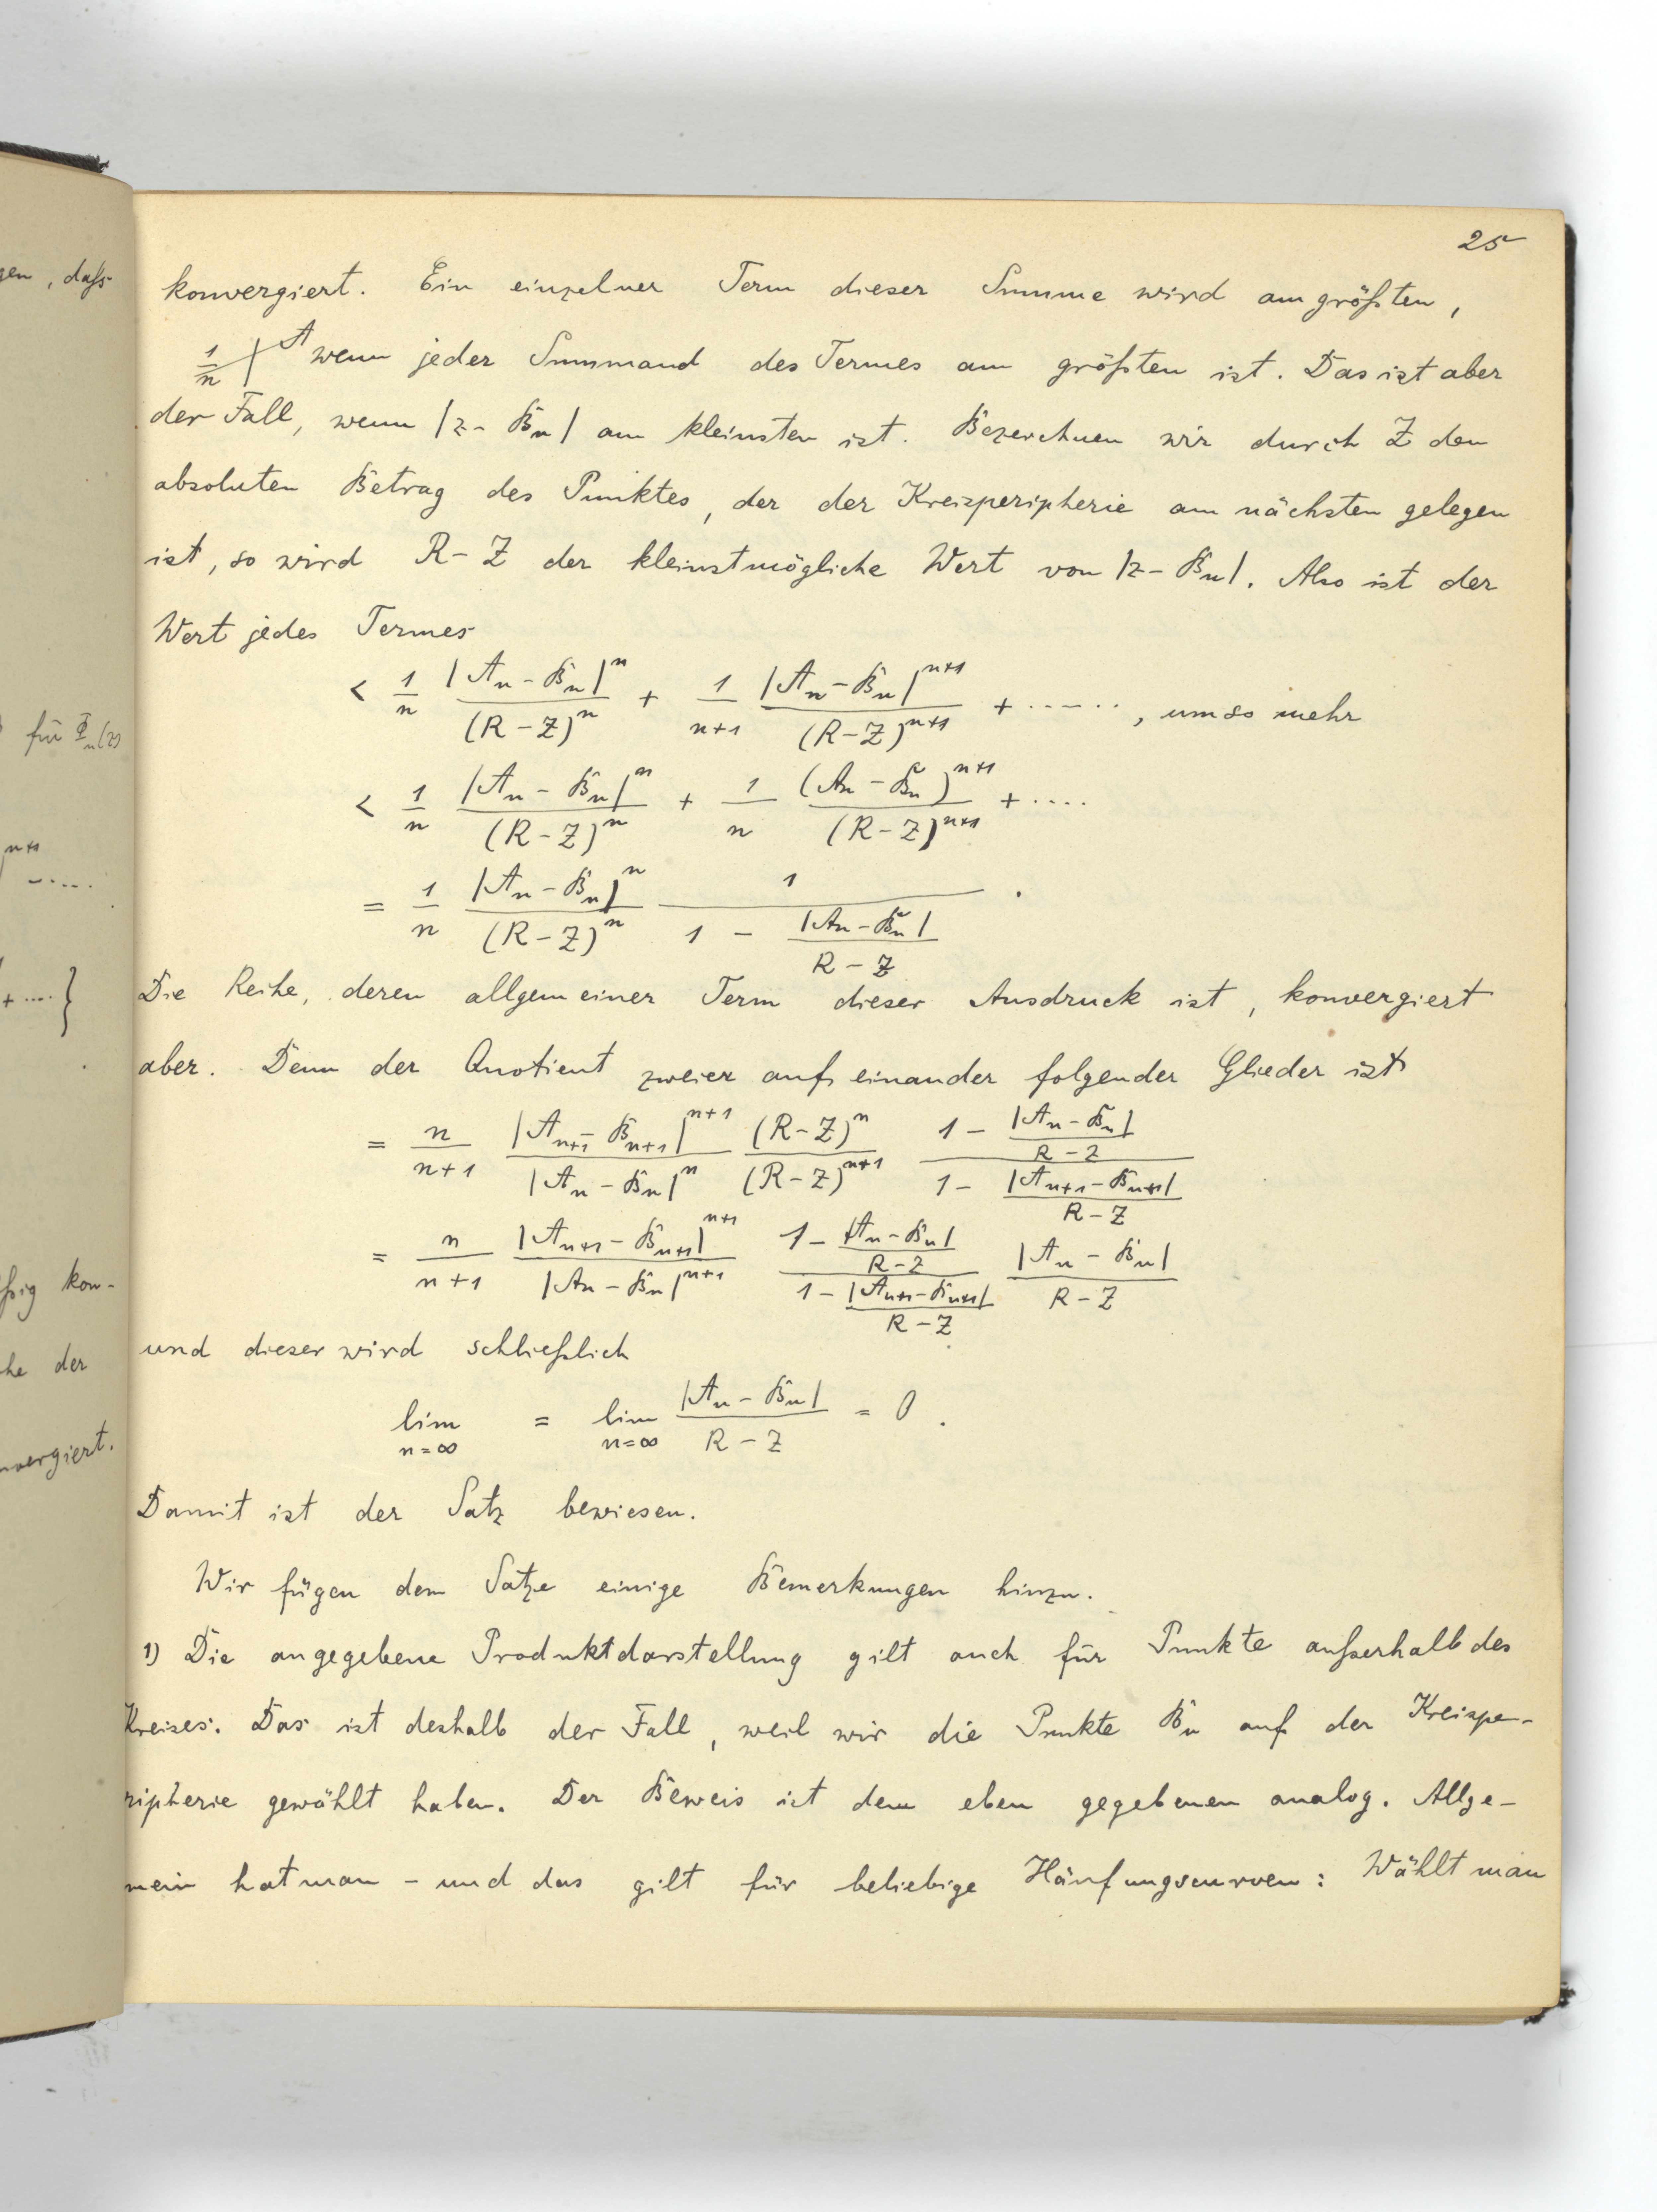 25
konvergiert. Ein einzelner Term dieser Summe wird am größten,
1/n | A wenn jeder Summand des Termes am größten ist. Das ist aber
der Fall, wenn |z - Bn| am kleinsten ist. Bezeichnen wir durch Z den
absoluten Betrag des Punktes, der der Kreisperipherie am nächsten gelegen
ist, so wird R - Z der kleinstmögliche Wert von |z - Bn|. Also ist der
Wert jedes Termes
< 1/n |An - Bn|^n/(R - Z)^n + 1/(n+1) |An - Bn|^(n+1)/(R - Z)^(n+1) + ······, umso mehr
< 1/n |An - Bn|^n/(R - Z)^n + 1/n (An - Bn)^(n+1)/(R - Z)^(n+1) + ····
= 1/n |An - Bn|^n/(R - Z)^n 1/(1 - |An - Bn|/(R - Z)).
Die Reihe, deren allgemeiner Term dieser Ausdruck ist, konvergiert
aber. Denn der Quotient zweier auf einander folgender Glieder ist
= n/(n+1) |An+1 - Bn+1|^(n+1)/|An - Bn|^n (R - Z)^n/(R - Z)^(n+1) (1 - |An - Bn|/(R - Z))/(1 - |An+1 - Bn+1|/(R - Z))
= n/(n+1) |An+1 - Bn+1|^(n+1)/|An - Bn|^(n+1) (1 - |An - Bn|/(R - Z))/(1 - |An+1 - Bn+1|/(R - Z)) |An - Bn|/(R - Z)
und dieser wird schließlich
lim n=∞ = lim n=∞ |An - Bn|/(R - Z) = 0.
Damit ist der Satz bewiesen.
Wir fügen dem Satze einige Bemerkungen hinzu.
1) Die angegebene Produktdarstellung gilt auch für Punkte außerhalb des
Kreises. Das ist deshalb der Fall, weil wir die Punkte Bn auf der Kreispe-
ripherie gewählt haben. Der Beweis ist dem eben gegebenen analog. Allge-
mein hat man - und das gilt für beliebige Häufungscurven: Wählt man